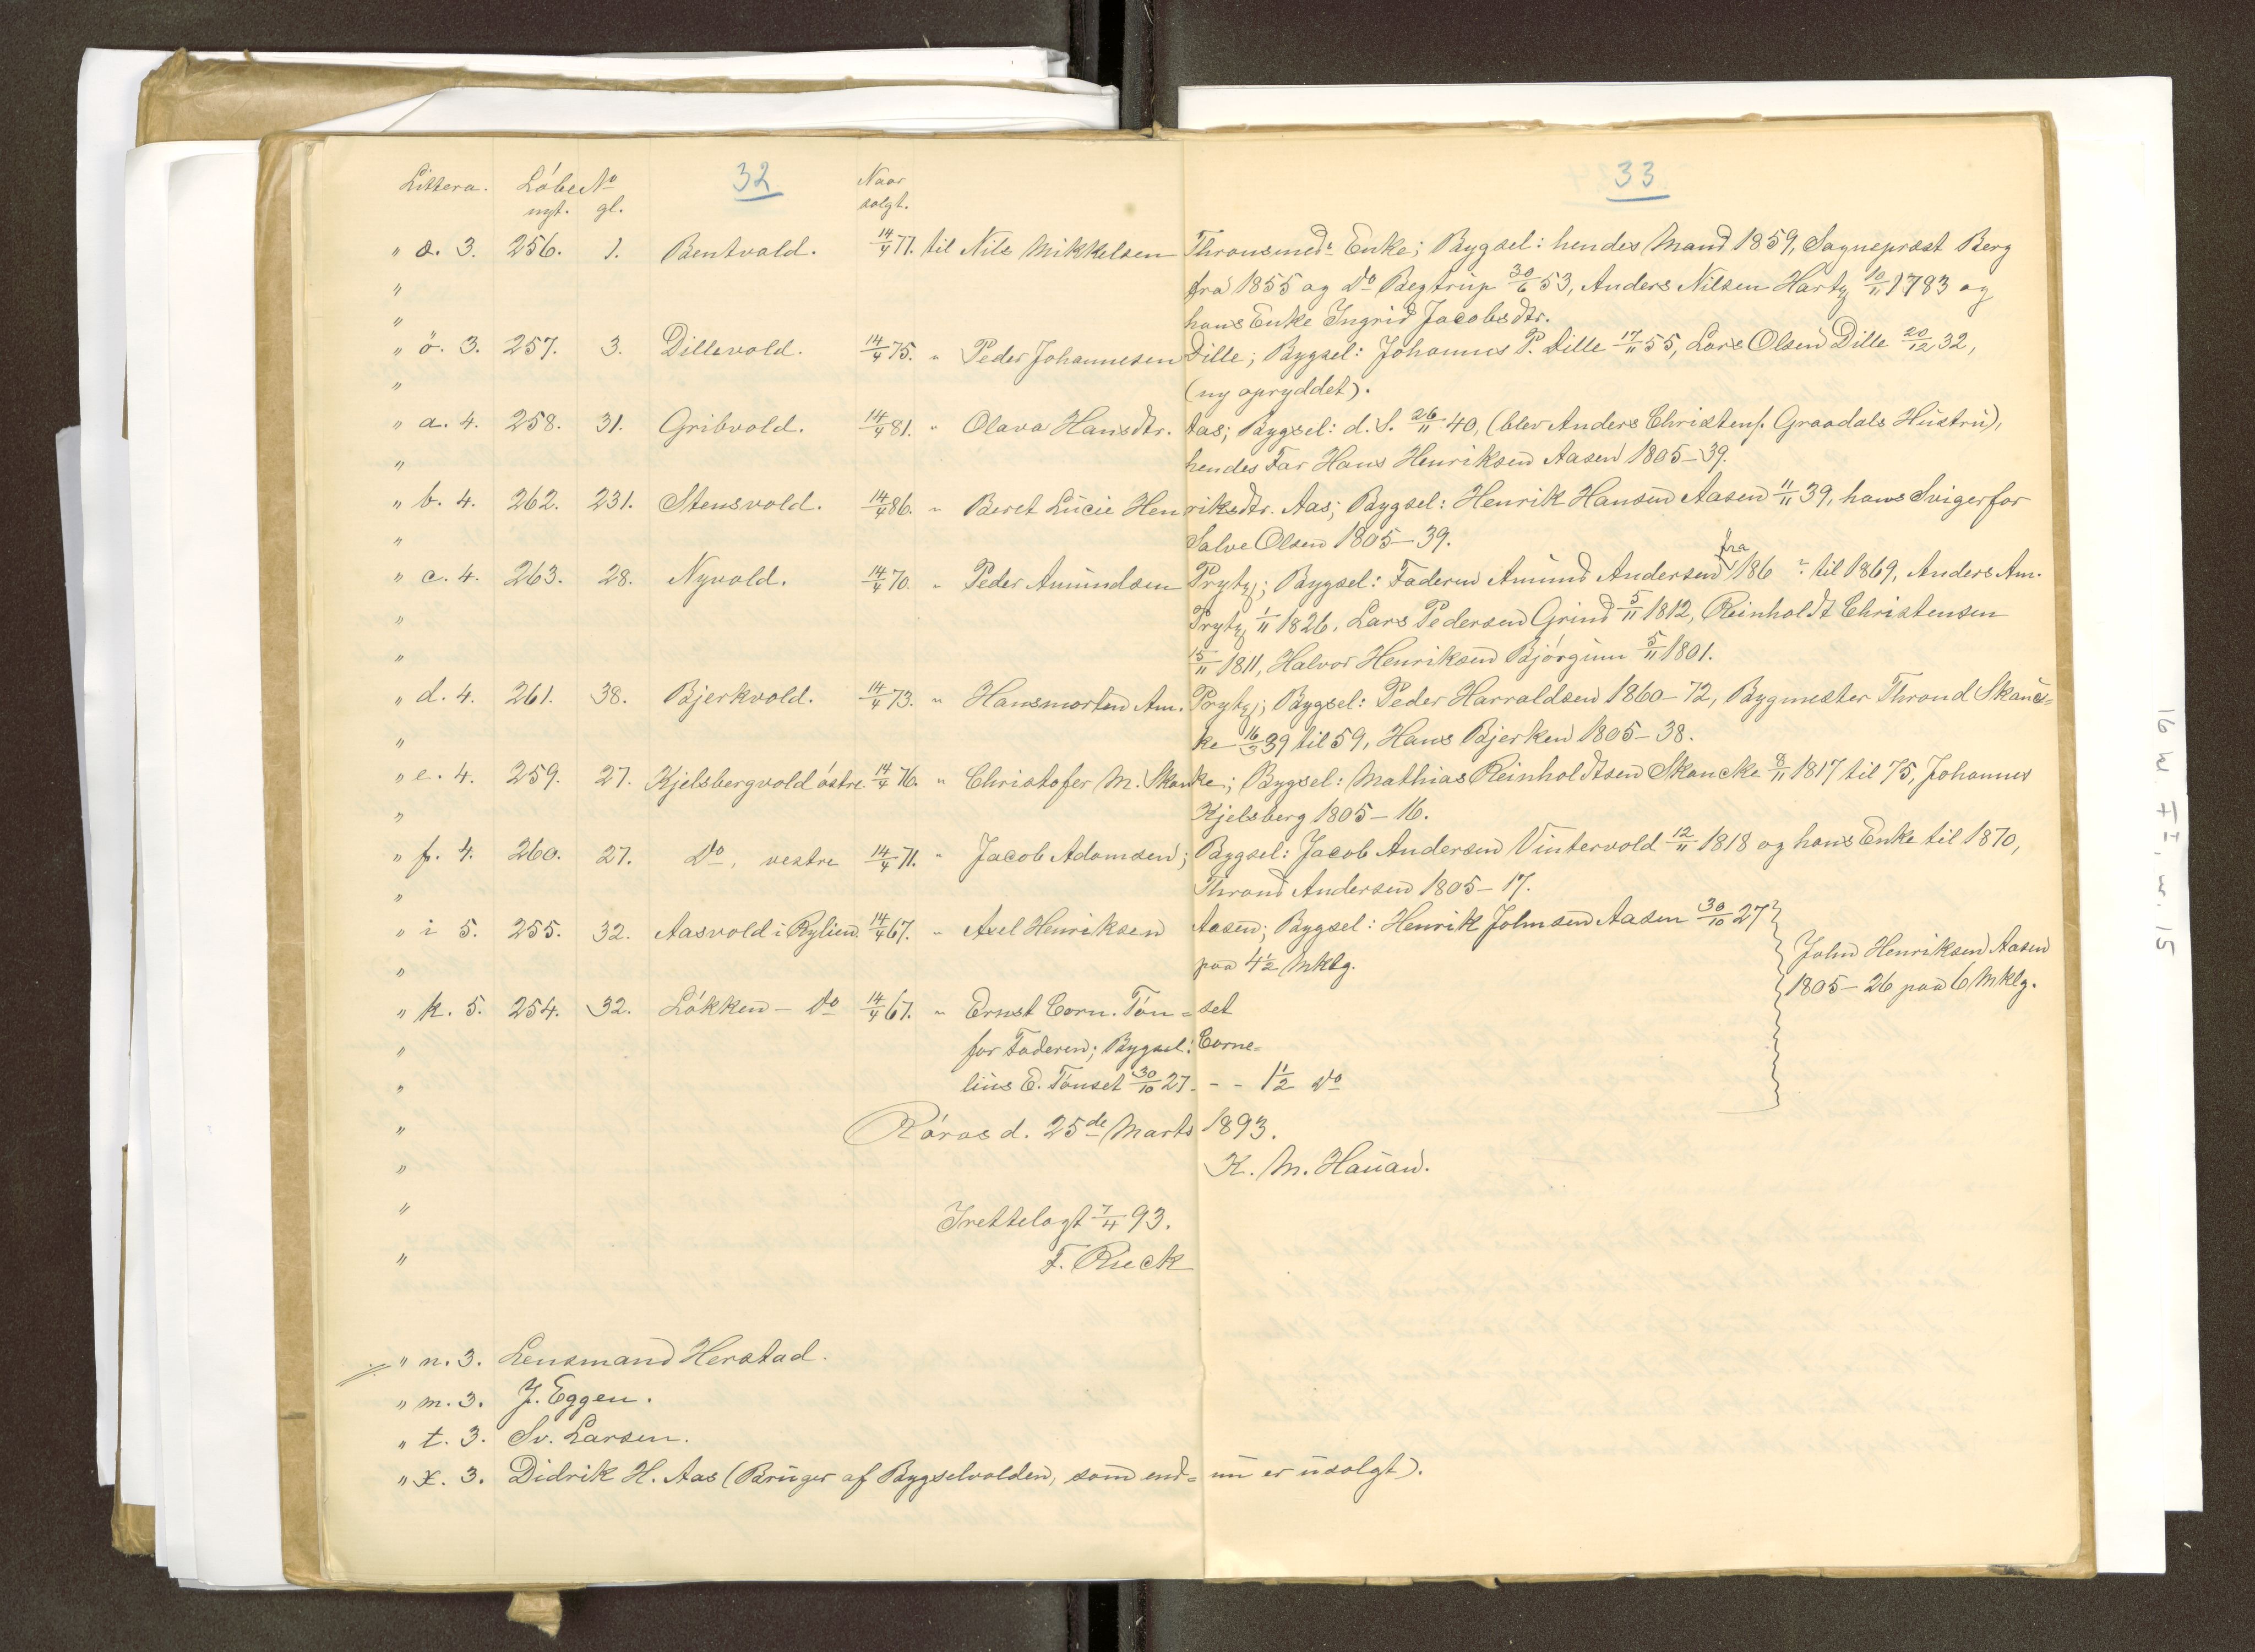 32
33
Littera. Løbe No Naar
nyt. gl. solgt.
" æ. 3. 256. 1. Bentvold. 14/4 77. til Nils Mikkelsen Thronsmeds Enke; Bygsel: hendes Mand 1859, Sognepræst Berg
" fra 1855 og do Begtrup 30/6 53, Anders Nilsen Harty 10/11 1783 og
" hans Enke Ingrid Jacobsdtr.
" ø. 3. 257. 3. Dillevold. 14/4 75. " Peder Johannesen Dille; Bygsel: Johannes P. Dille 17/11 55, Lars Olsen Dille 20/12 32,
" (ny opryddet).
" a. 4. 258. 31. Gribvold. 14/4 81. " Olava Hansdtr. Aas; Bygsel: d. S. 26/11 40, (blev Anders Christens. Graadals Hustru),
" hendes Far Hans Henriksen Aasen 1805–39.
" b. 4. 262. 231. Stensvold. 14/4 86. " Beret Lucie Henriksdtr. Aas; Bygsel: Henrik Hansen Aasen 11/11 39, hans Svigerfar
" Salve Olsen 1805–39.
" c. 4. 263. 28. Nyvold. 14/4 70. " Peder Amundsen Prytz; Bygsel: Faderen Amund Andersen fra 186 ? til 1869, Anders Am.
" Prytz 1/11 1826, Lars Pedersen Grind 5/11 1812, Reinholdt Christensen
" 15/11 1811, Halvor Henriksen Bjørgum 5/11 1801.
" d. 4. 261. 38. Bjerkvold. 14/4 73. " Hansmorten Am. Prytz; Bygsel: Peder Harraldsen 1860–72, Bygmester Thrond Skanc=
" ke 16/3 39 til 59, Hans Bjerken 1805–38.
" e. 4. 259. 27. Kjelsbergvold østre 14/4 76. " Christofer M. Skanke; Bygsel: Mathias Reinholdtsen Skancke 8/11 1817 til 75, Johannes
" Kjelsberg 1805–16.
" f. 4. 260. 27. do, vestre 14/4 71. " Jacob Adamsen; Bygsel: Jacob Andersen Vintervold 12/11 1818 og hans Enke til 1870,
" Thrond Andersen 1805–17.
" i 5. 255. 32. Aasvold i Rylien. 14/4 67. " Axel Henriksen Aasen; Bygsel: Henrik Johnsen Aasen 30/10 27
" paa 4½ Mklg.
John Henriksen Aasen
1805–26 paa 6 Mklg.
" k. 5. 254. 32. Løkken – do 14/4 67. " Ernst Corn. Tøn=set
" for Faderen; Bygsel: Corne=
" lius E. Tønset 30/10 27. - - 1½ do
" Røros d. 25de Marts 1893.
" K. M. Hauan.
" Irettelagt 7/4 93.
" F. Rieck
" n. 3. Lensmand Herstad.
" m. 3. J. Eggen.
" t. 3. Sv. Larsen.
" x. 3. Didrik H. Aas (Bruger af Bygselvolden, som end= nu er usolgt).